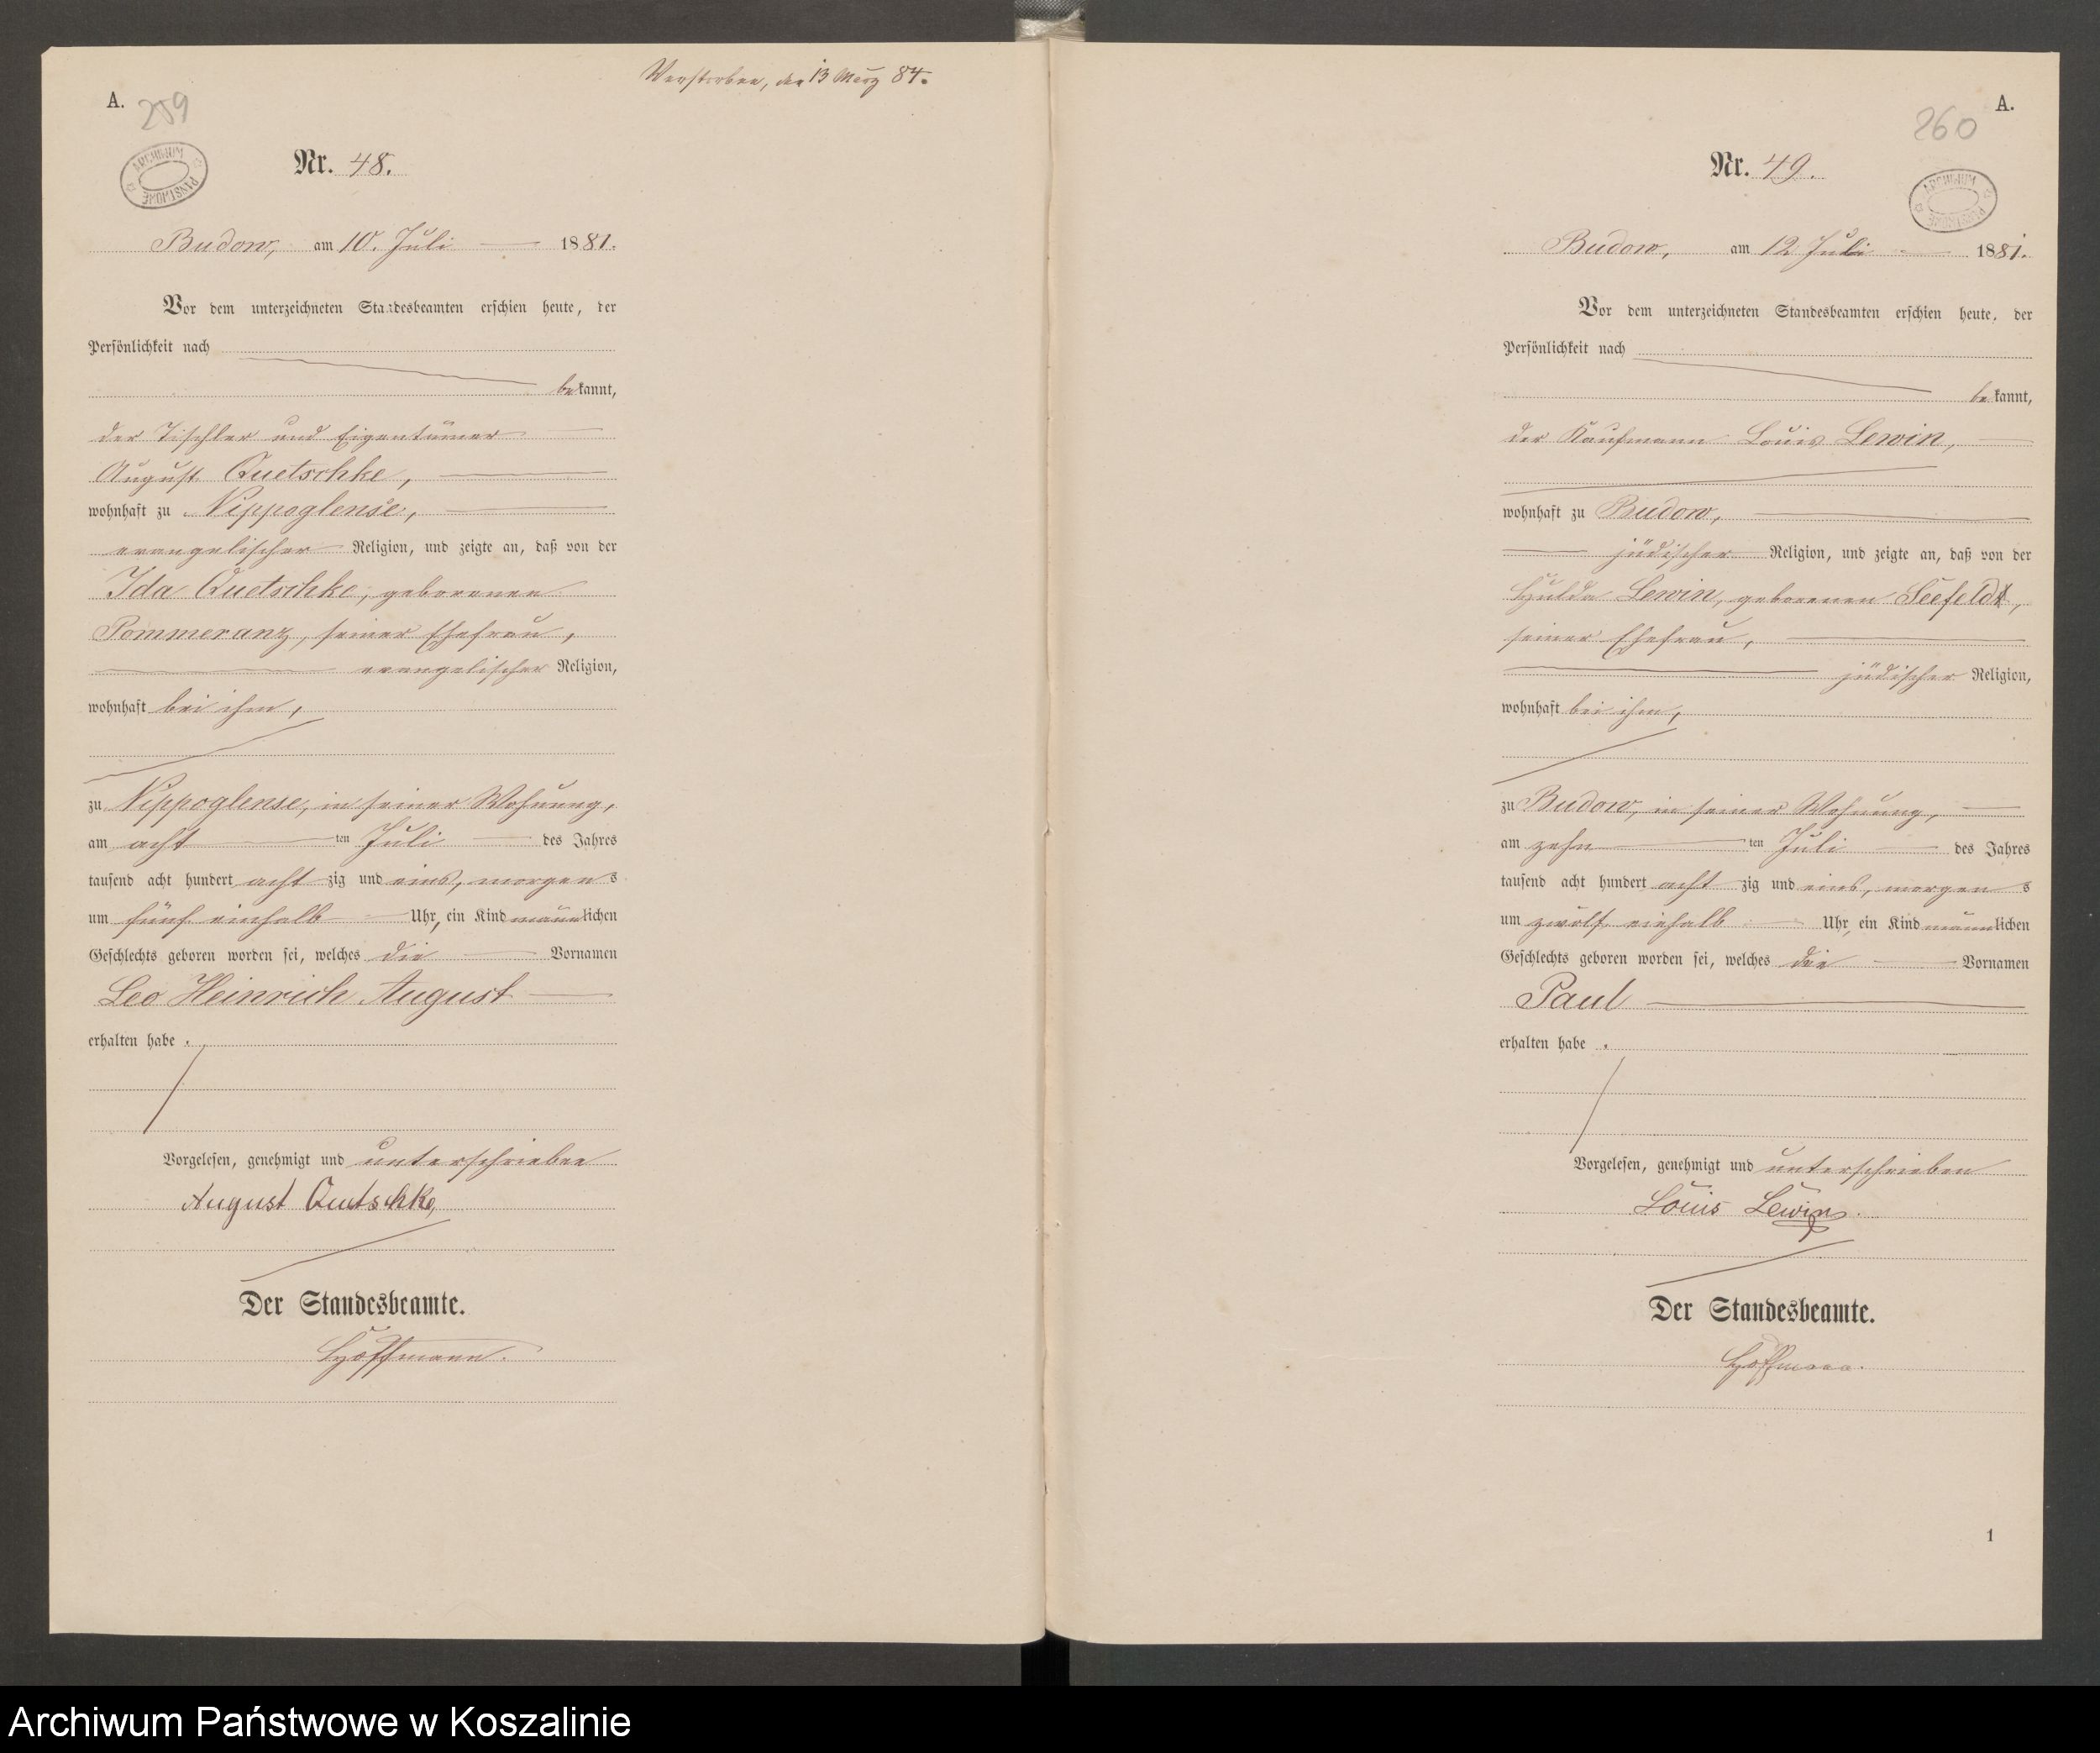 Verstorben, den 13 März 84.
A.
259
ARCHIWUM PAŃSTWOWE
Nr. 48.
Budow, am 10. Juli 1881.
Vor dem unterzeichneten Standesbeamten erschien heute, der
Persönlichkeit nach
bekannt,
der Tischler und Eigentümer
August Quetschke,
wohnhaft zu Nippoglense,
evangelischer Religion, und zeigte an, daß von der
Ida Quetschke, geborenen
Pommeranz, seiner Ehefrau,
evangelischer Religion,
wohnhaft bei ihm,
zu Nippoglense, in seiner Wohnung,
am acht ten Juli des Jahres
tausend acht hundert acht zig und eins, morgens
um fünf einhalb Uhr, ein Kind männlichen
Geschlechts geboren worden sei, welches die Vornamen
Leo Heinrich August
erhalten habe.
Vorgelesen, genehmigt und unterschrieben
August Quetschke,
Der Standesbeamte.
Hoffmann.
A.
260
ARCHIWUM PAŃSTWOWE
Nr. 49.
Budow, am 12. Juli 1881.
Vor dem unterzeichneten Standesbeamten erschien heute, der
Persönlichkeit nach
bekannt,
der Kaufmann Louis Lewin,
wohnhaft zu Budow,
jüdischer Religion, und zeigte an, daß von der
Hulda Lewin, geborenen Seefeldt,
seiner Ehefrau,
jüdischer Religion,
wohnhaft bei ihm,
zu Budow, in seiner Wohnung,
am zehn ten Juli des Jahres
tausend acht hundert acht zig und eins, morgens
um zwölf einhalb Uhr, ein Kind männlichen
Geschlechts geboren worden sei, welches die Vornamen
Paul
erhalten habe.
Vorgelesen, genehmigt und unterschrieben
Louis Lewin.
Der Standesbeamte.
Hoffmann.
1
Archiwum Państwowe w Koszalinie